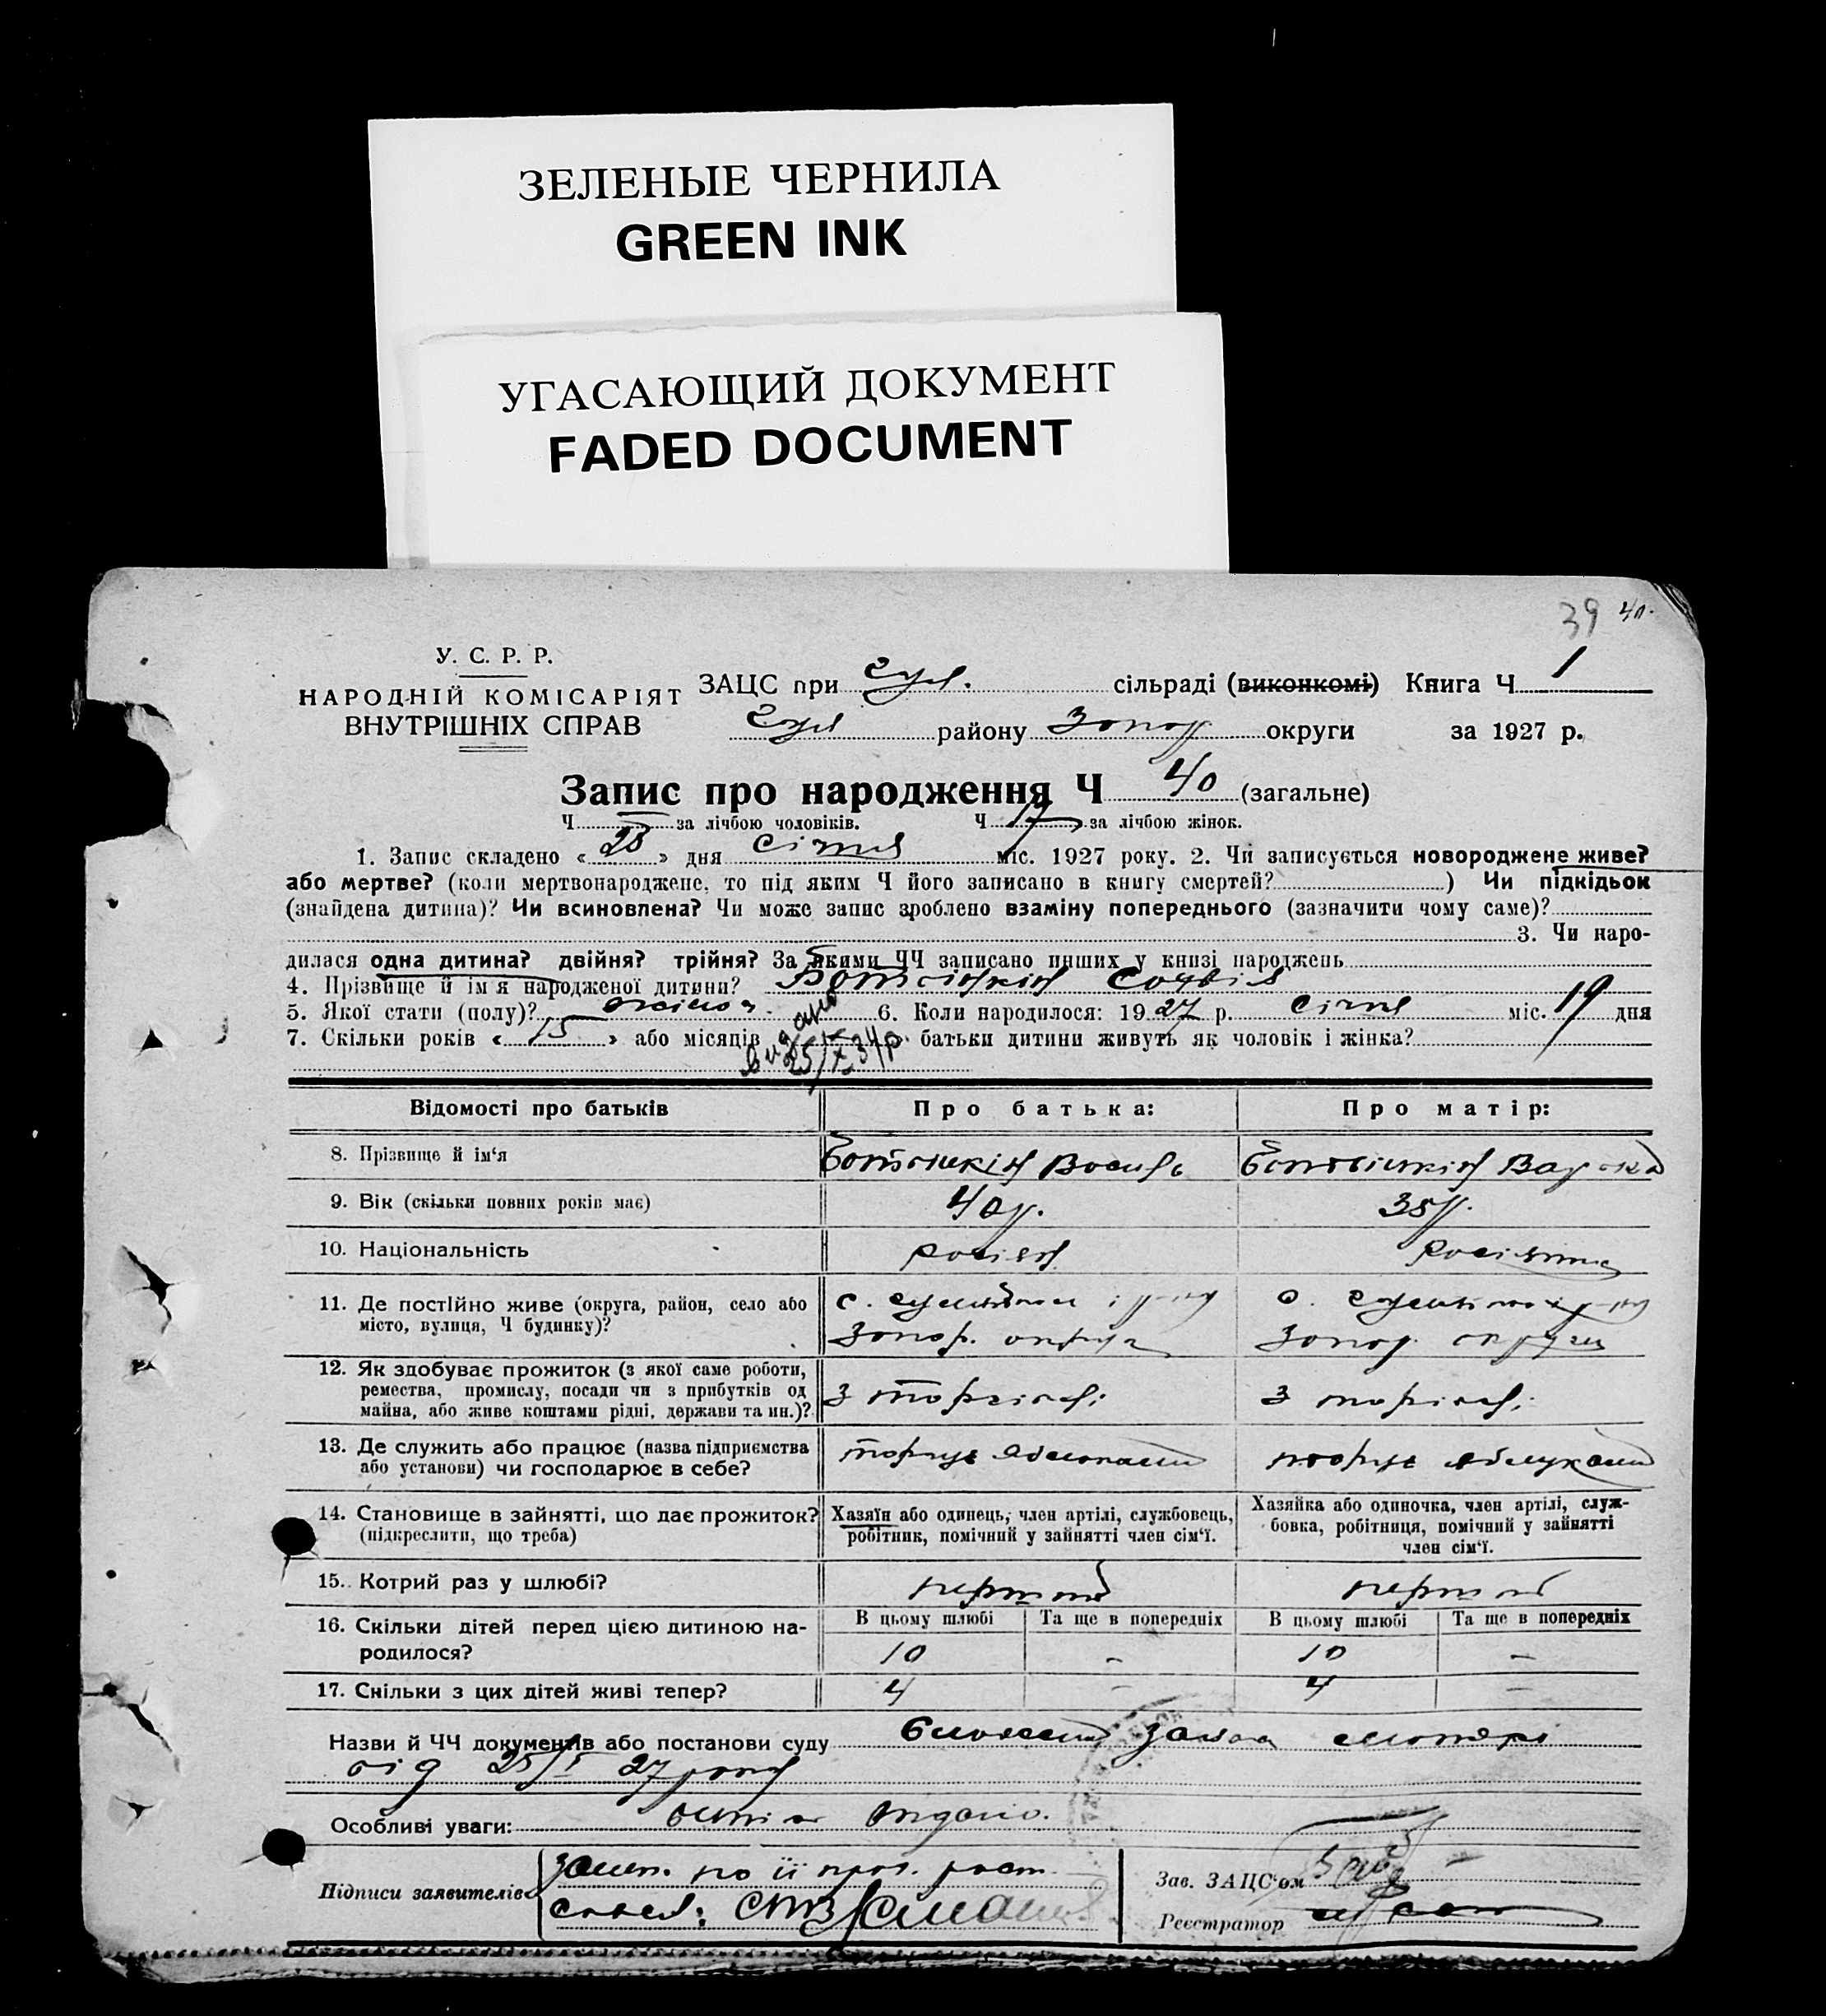 ЗЕЛЕНЫЕ ЧЕРНИЛА
GREEN INK
УГАСАЮЩИЙ ДОКУМЕНТ
FADED DOCUMENT
39 40.
У. С. Р. Р.
НАРОДНІЙ КОМІСАРІЯТ
ВНУТРІШНІХ СПРАВ
ЗАЦС при сільраді (виконкомі) Книга Ч 1
району Запор округи за 1927 р.
Запис про народження Ч 40 (загальне)
Ч — за лічбою чоловіків. Ч 17 за лічбою жінок.
1. Запис складено « 25 » дня січня міс. 1927 року. 2. Чи записується новороджене живе?
або мертве? (коли мертвонароджене, то під яким Ч його записано в книгу смертей? ) Чи підкідьок
(знайдена дитина)? Чи всиновлена? Чи може запис зроблено взаміну попереднього (зазначити чому саме)?
3. Чи наро-
дилася одна дитина? двійня? трійня? За якими ЧЧ записано инших у книзі народжень
4. Прізвище й ім'я народженої дитини? Софія
5. Якої стати (полу)? жіноч. 6. Коли народилося: 1927 р. січня міс. 19 дня
7. Скільки років « 15 » або місяців батьки дитини живуть як чоловік і жінка?
Видано
25/X 34 р.
Відомості про батьків
Про батька:
Про матір:
8. Прізвище й ім'я Василь
9. Вік (скільки повних років має) 40 р. 35 р.
10. Національність росіян росіянка
11. Де постійно живе (округа, район, село або
місто, вулиця, Ч будинку)?
с. і р-ну с. і р-ну
Запор. округи Запор. округи
12. Як здобуває прожиток (з якої саме роботи,
ремества, промислу, посади чи з прибутків од
майна, або живе коштами рідні, держави та ин.)?
з торгівлі з торгівлі
13. Де служить або працює (назва підприємства
або установи) чи господарює в себе?
торгує яблоками торгує яблуками
14. Становище в зайнятті, що дає прожиток?
(підкреслити, що треба)
Хазяїн або одинець, член артілі, службовець,
робітник, помічний у зайнятті член сім'ї.
Хазяйка або одиночка, член артілі, служ-
бовка, робітниця, помічний у зайнятті
член сім'ї.
15. Котрий раз у шлюбі? перший перший
16. Скільки дітей перед цією дитиною на-
родилося?
В цьому шлюбі Та ще в попередніх В цьому шлюбі Та ще в попередніх
10 – 10 –
17. Скільки з цих дітей живі тепер? 4 – 4 –
Назви й ЧЧ документів або постанови суду заява матері
від 25/I 27 року
Особливі уваги: видано.
Підписи заявителів
Зав. ЗАЦС'ом
Реєстратор